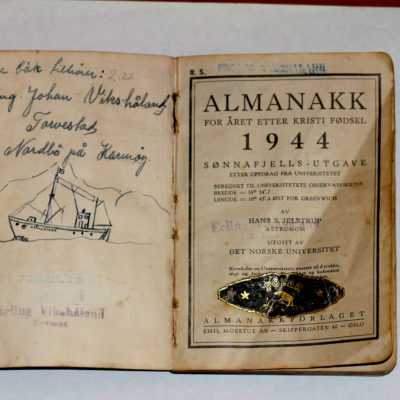 båk tilhører: 2.22
Johan Vikshåland
Torvestad
Nordbö på Karmøy.
Erling Vikshåland
R. S.
ALMANAKK
FOR ÅRET ETTER KRISTI FØDSEL
1944
SØNNAFJELLS-UTGAVE
ETTER OPPDRAG FRA UNIVERSITETET
BEREGNET TIL UNIVERSITETETS OBSERVATORIUM
BREDDE = 59° 54'.7
LENGDE = 10° 43'.4 ØST FOR GREENWICH
AV
HANS S. JELSTRUP
ASTRONOM
UTGITT AV
DET NORSKE UNIVERSITET
ALMANAKKFORLAGET
EMIL MOESTUE A/S — SKIPPERGATEN 46 — OSLO